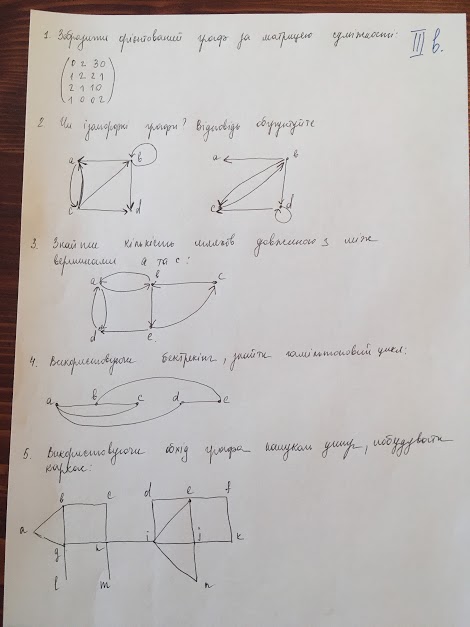 1. Зобразити орієнтований граф за матрицею суміжності:
III в.
0 2 3 0
1 2 2 1
2 1 1 0
1 0 0 2
2. Чи ізоморфні графи? Відповідь обґрунтуйте
a b a b
c d c d
3. Знайти кількість шляхів довжиною 3 між
вершинами a та c:
a b c
d e
4. Використовуючи бектрекінг, знайти гамільтоновий цикл:
a b c d e
5. Використовуючи обхід графа пошуком вшир, побудувати
каркас:
b c d e f
a
g h i j k
l m n